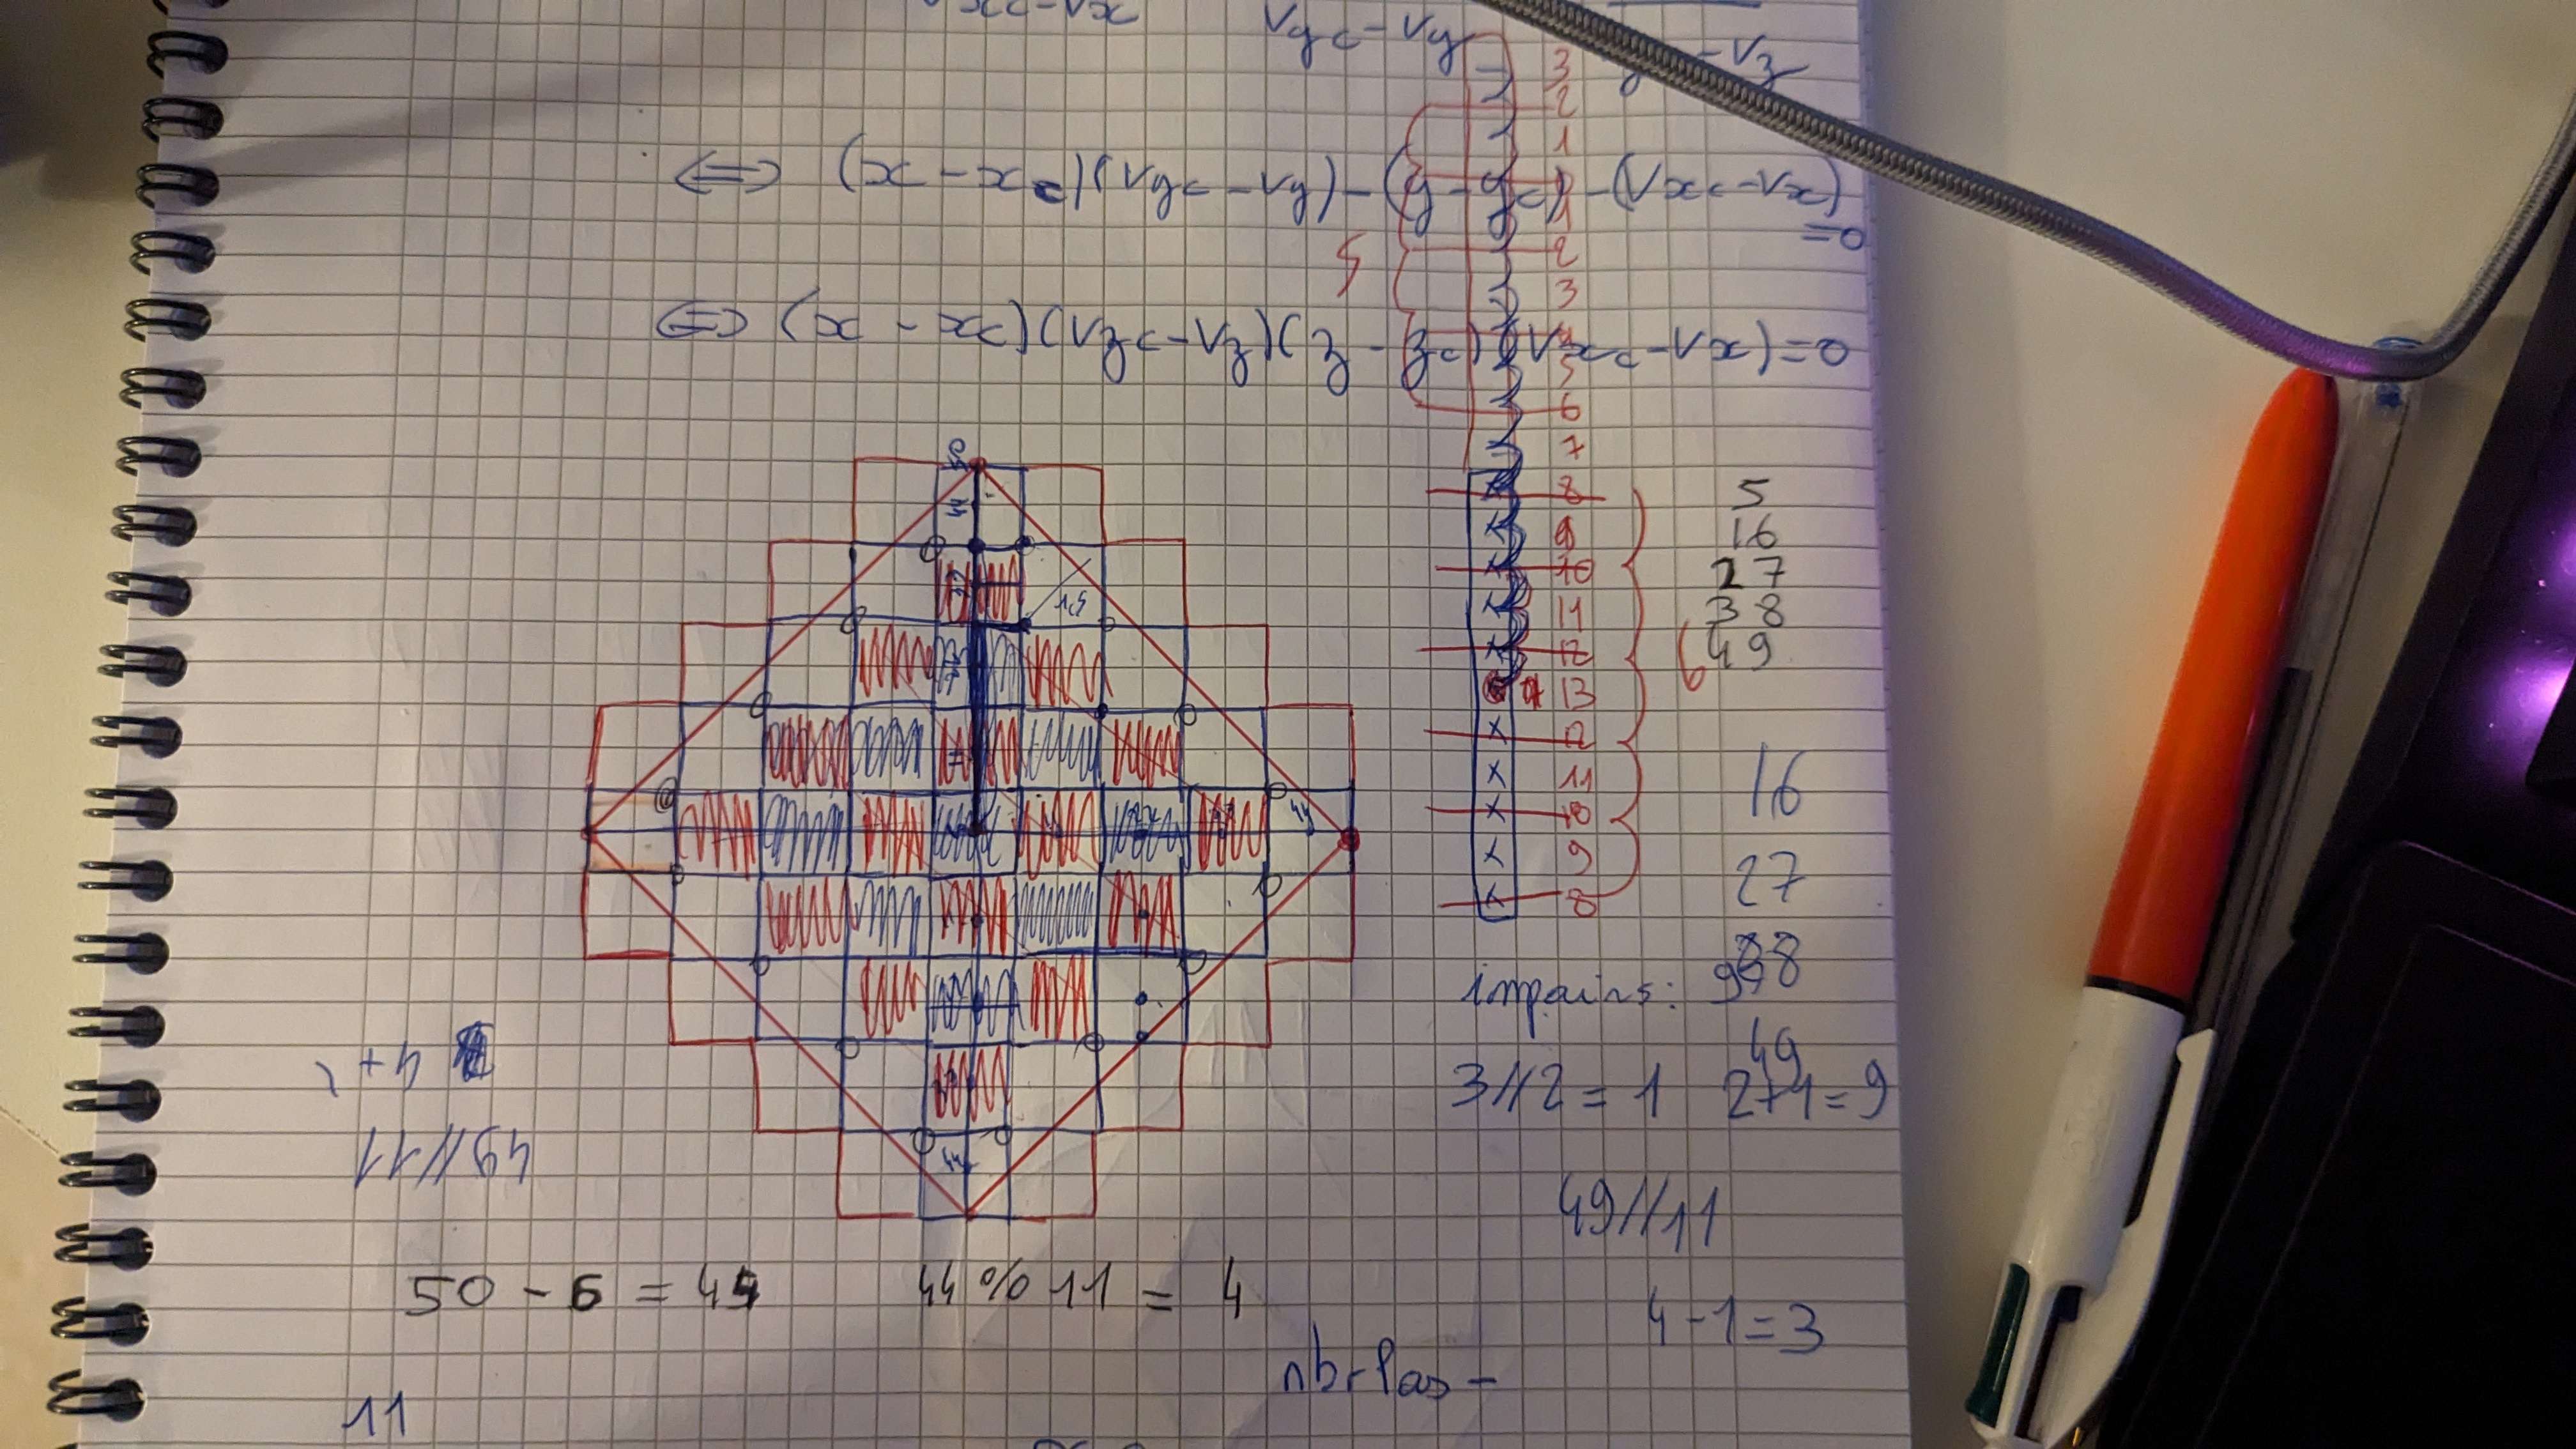 Vxc-Vx
Vyc-Vy
-Vz
⇔ (x-xc)(Vyc-Vy)-(y-yc)-(Vxc-Vx)
=0
⇔ (x-xc)(Vzc-Vz)(z-zc)(Vxc-Vx)=0
3
2
1
1
2
3
5
6
7
8
9
10
11
12
13
12
11
10
9
8
5
6
5
16
27
38
49
1,5
44
44
16
27
impairs:
38
49
3//2 = 1
2+1=9
49//11
4-1=3
4+1
49//11
50 - 6 = 44
44 % 11 = 4
nbrPas -
11